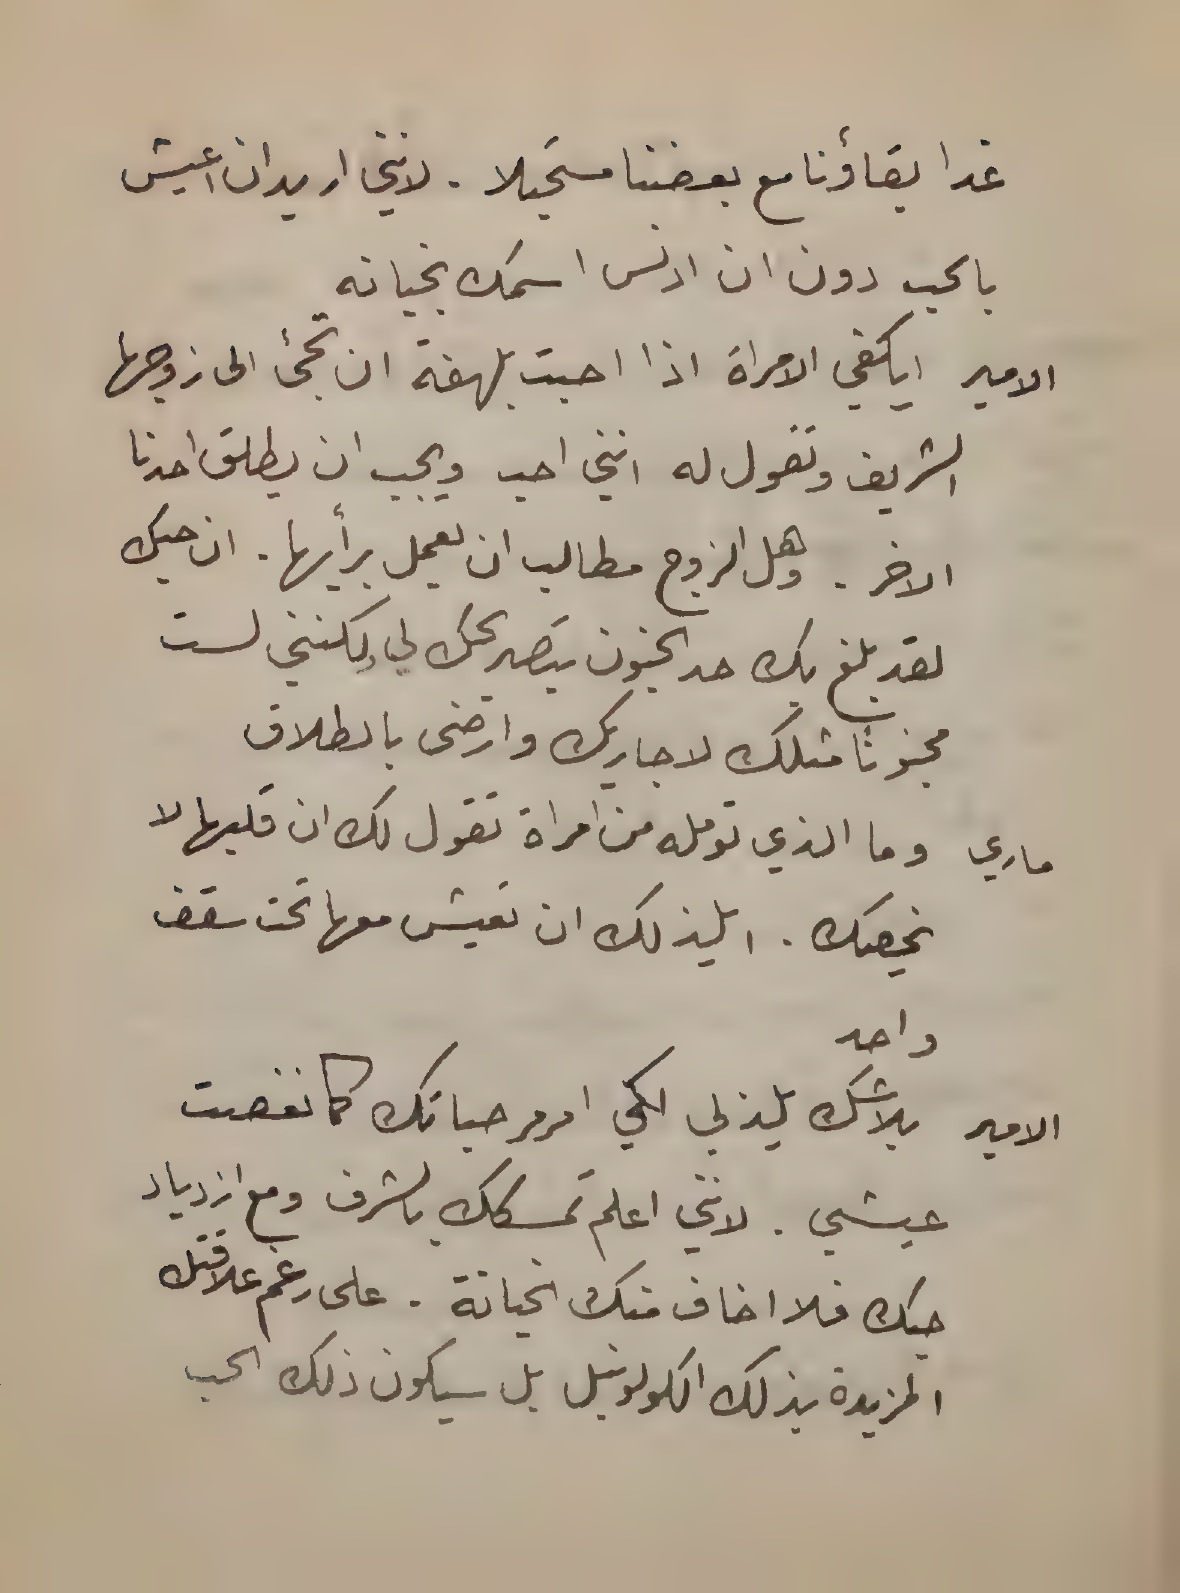 غدا بقاؤنا مع بعضنا مستحيلا . لانني اريد ان اعيش
بالحب دون ان ادنس اسمك بخيانه
الامير ايكفي الامراة اذا احبت بلهفة ان تجئ الى زوجها
الشريف وتقول له انني احب ويجب ان يطلق احدنا
الاخر . وهل الزوج مطالب ان يعمل برأيها . ان حبك
لقد بلغ بك حد الجنون بتصريحك لي ولكنني لست
مجنونًا مثلك لاجاريك وارضى بالطلاق
ماري وما الذي تومله من امراة تقول لك ان قلبها لا
يخصك . ايليذ لك ان تعيش معها تحت سقف
واحد
الامير بلاشك يليذ لي لكي امرمر حياتك كما نغصت
عيشي . لانني اعلم تمسكك بالشرف ومع ازدياد
حبك فلا اخاف منك الخيانة . على رغم علاقتك
المزيدة بذلك الكولونيل بل سيكون ذلك الحب